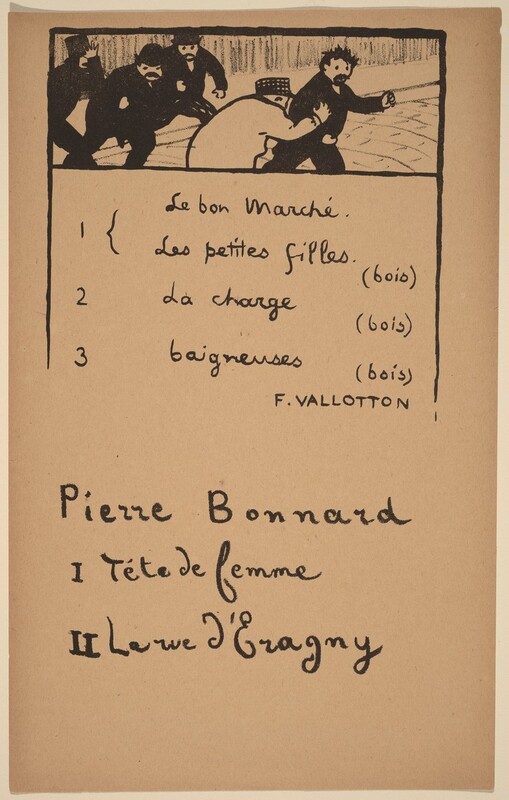 1 { Le bon Marché.
Les petites filles.
(bois)
2 La charge
(bois)
3 baigneuses
(bois)
F. VALLOTTON
Pierre Bonnard
I Tête de femme
II La rue d'Eragny